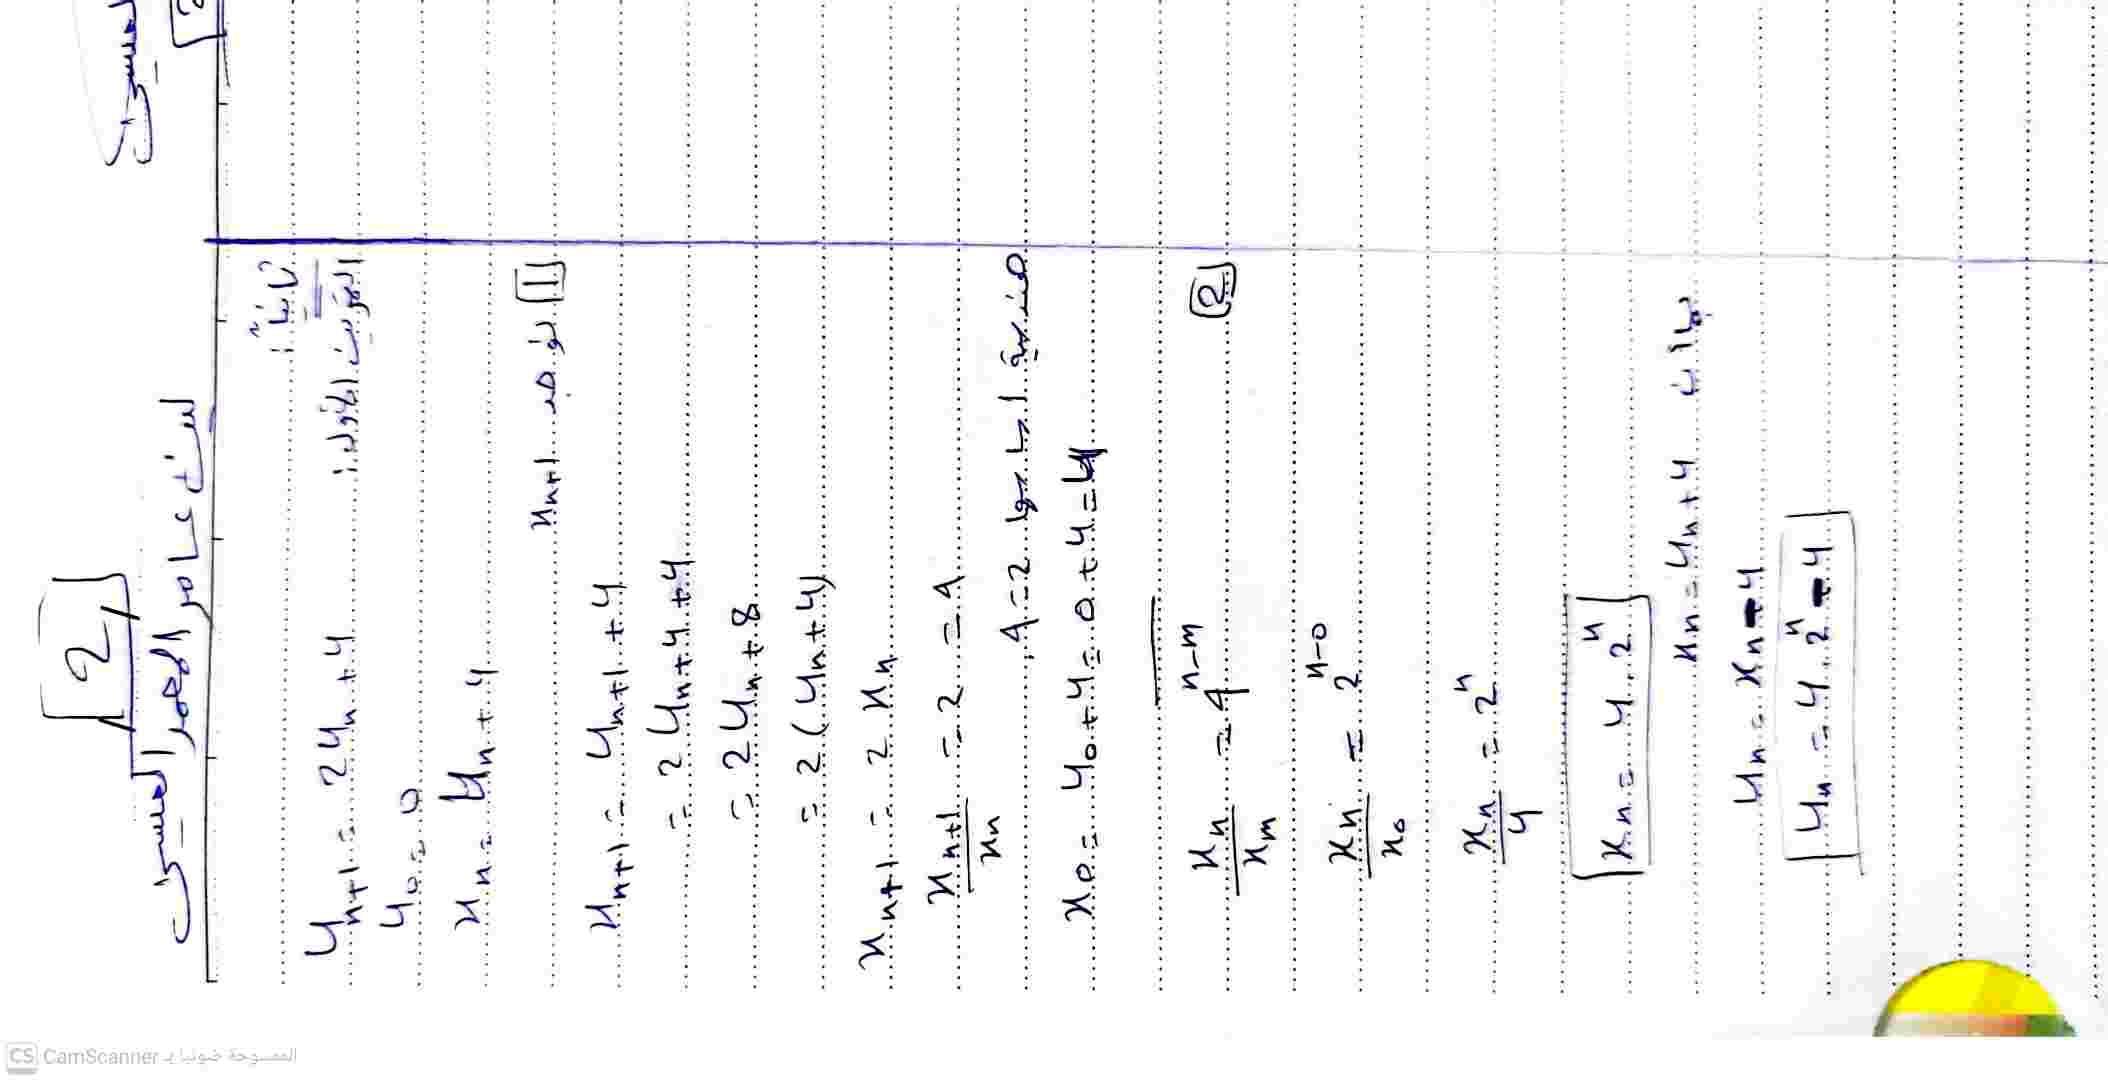 2
ثانياً:
التمرين الأول:
u_{n+1} = 2u_n + 4
u_0 = 0
x_n = u_n + 4
1 نوجد x_{n+1}
x_{n+1} = u_{n+1} + 4
= 2u_n + 4 + 4
= 2u_n + 8
= 2(u_n + 4)
x_{n+1} = 2x_n
x_{n+1}/x_n = 2 = q
هندسية أساسها q = 2
x_0 = u_0 + 4 = 0 + 4 = 4
2
x_n/x_m = q^{n-m}
x_n/x_0 = 2^{n-0}
x_n/4 = 2^n
x_n = 4 . 2^n
بما أن x_n = u_n + 4
u_n = x_n - 4
u_n = 4 . 2^n - 4
CS CamScanner الممسوحة ضوئيا بـ